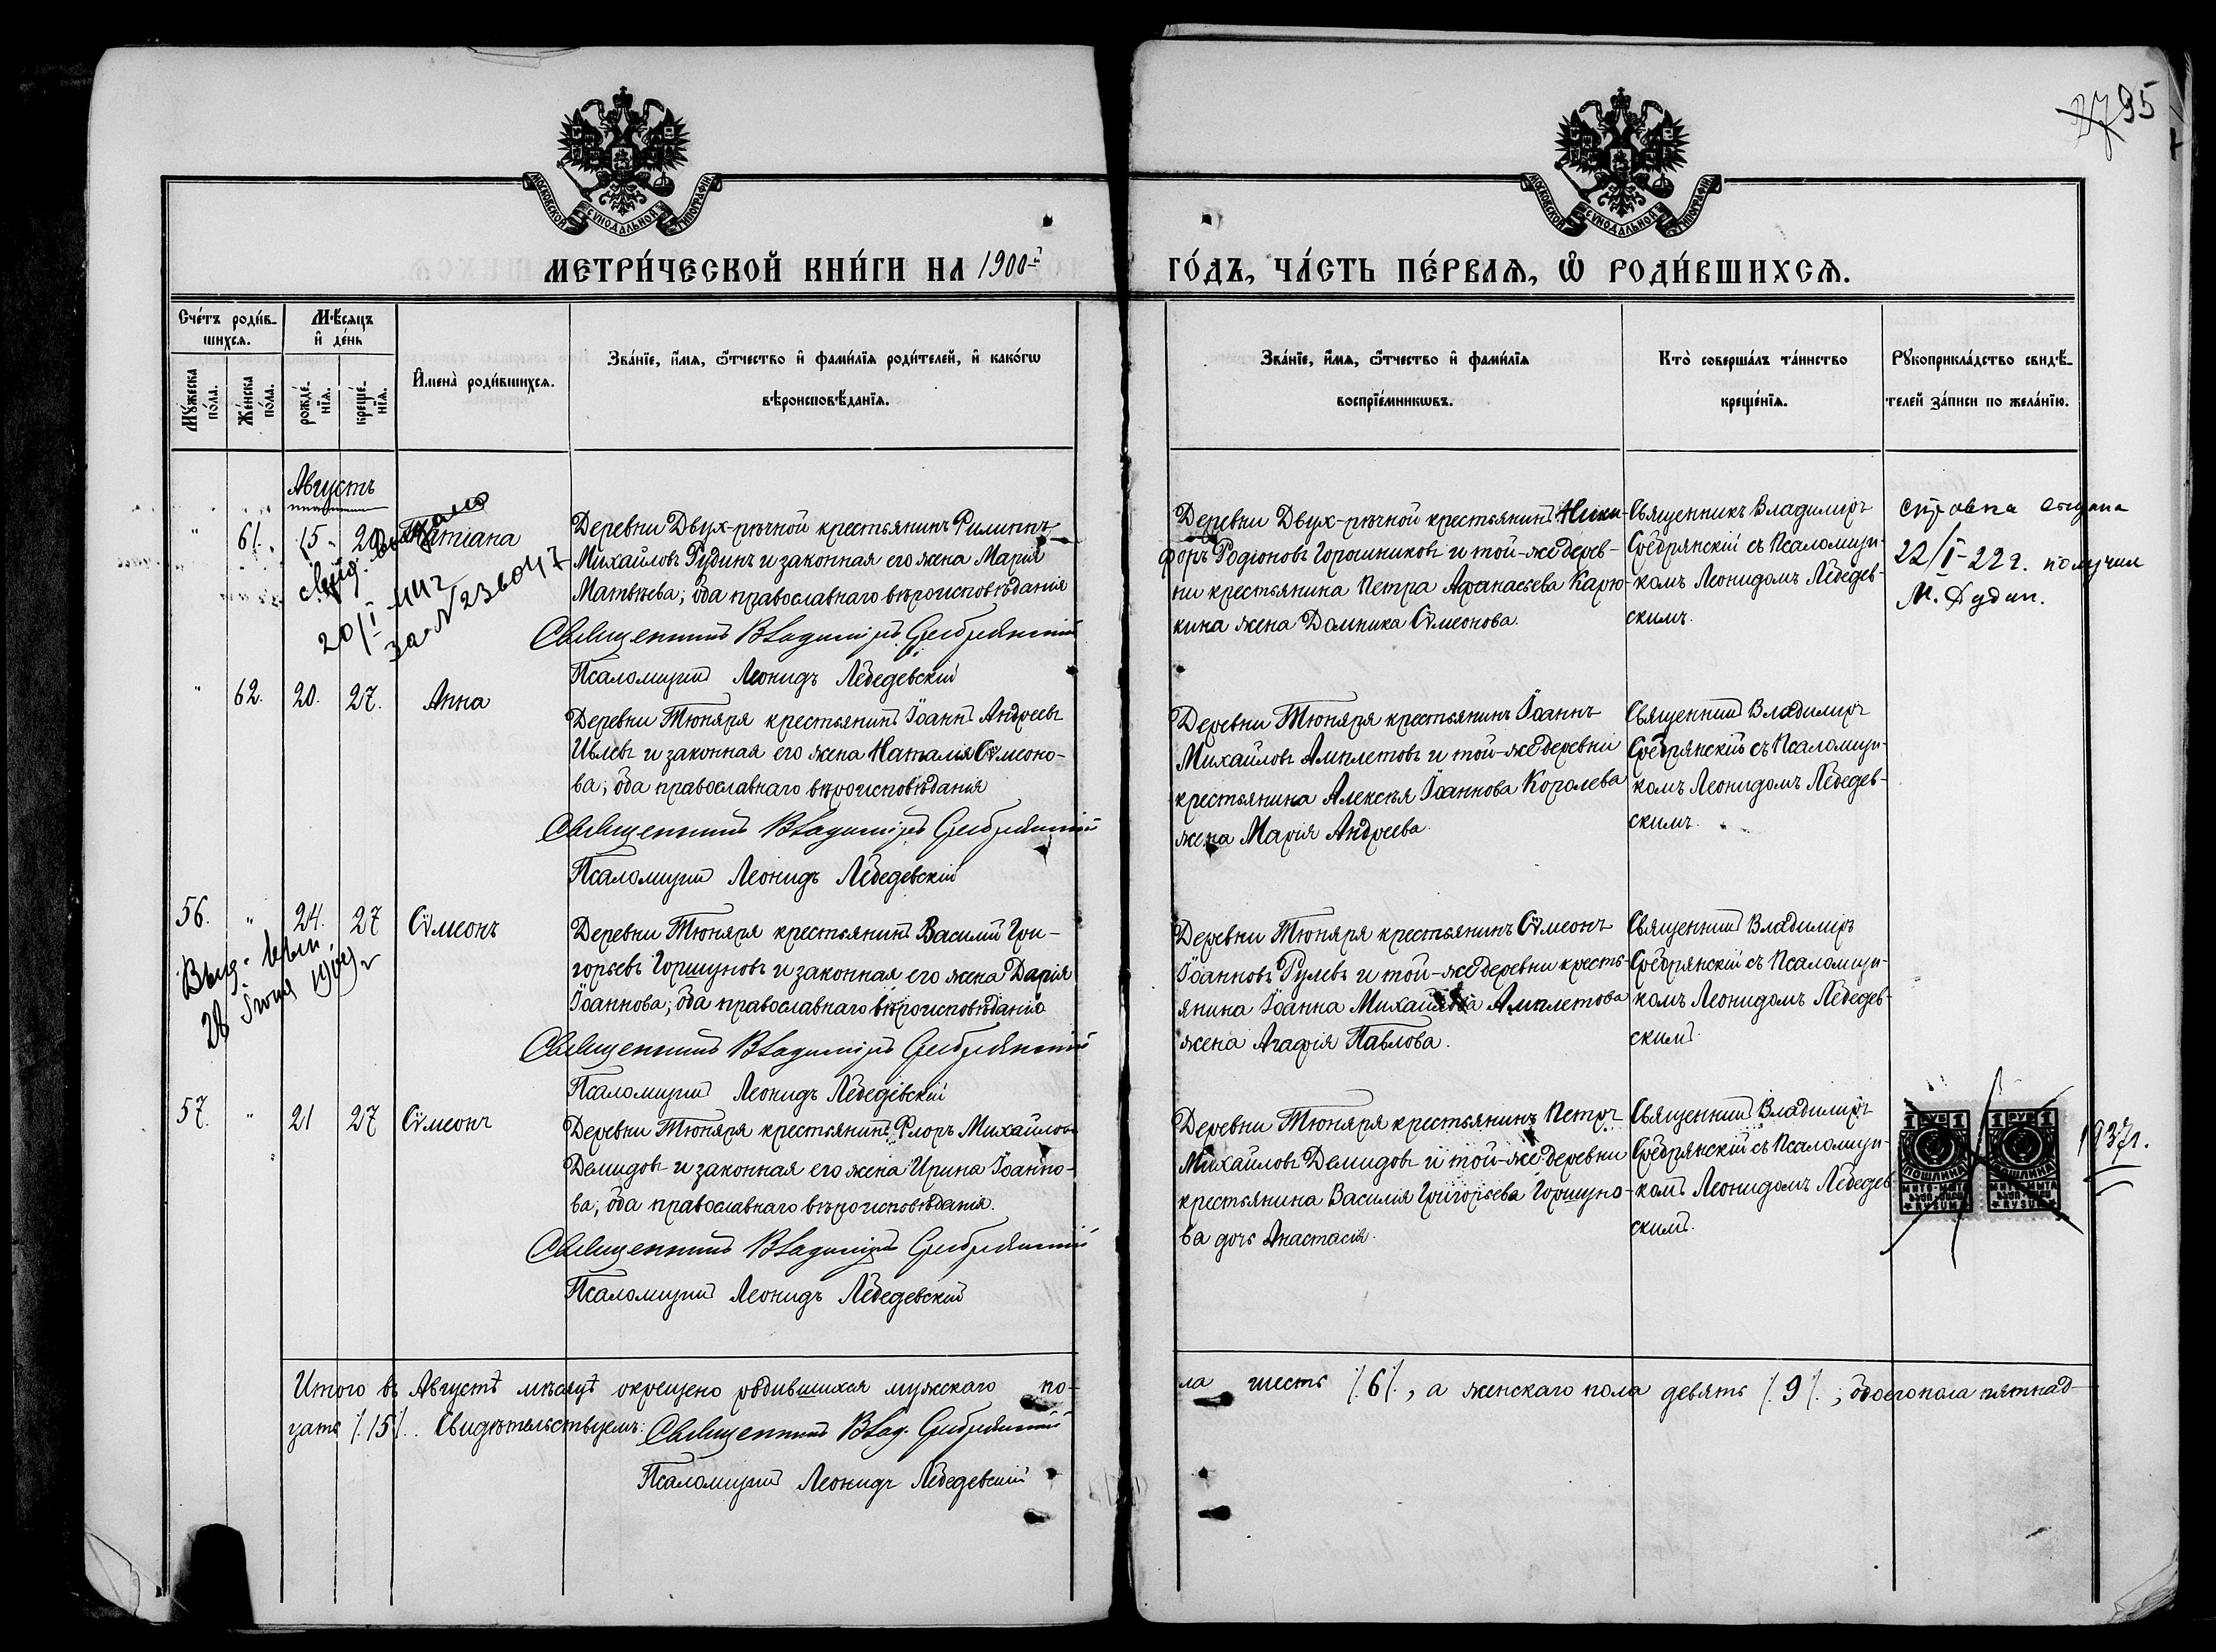 МОСКОВСКОЙ СѴНОДАЛЬНОЙ ТИПОГРАФІИ
МОСКОВСКОЙ СѴНОДАЛЬНОЙ ТИПОГРАФІИ
37 95
МЕТРИ́ЧЕСКОЙ КНИ́ГИ НА 1900-й
ГО́ДЪ, ЧА́СТЬ ПЕ́РВАѦ, Ѡ҆ РОДИ́ВШИХСѦ.
Сче́тъ роди́в-
шихся.
Мѣ́сяцъ
и҆ де́нь
Му́жеска
по́ла.
Же́нска
по́ла.
рожде́-
нїя.
креще́-
нїя.
И҆мена̀ роди́вшихся.
Зва́нїе, и҆́мя, ѻ҆́тчество и҆ фами́лїя роди́телей, и҆ како́гѡ
вѣроисповѣ́данїя.
Зва́нїе, и҆́мя, ѻ҆́тчество и҆ фами́лїя
воспрїе́мникѡвъ.
Кто̀ соверша́лъ та́инство
креще́нїя.
Рꙋкоприкла́дство свидѣ́-
телей за́писи по жела́нїю.
Августъ
" 61. 15. 20. Татіана
Деревни Двух-рѣчной крестьянинъ Филиппъ
Михайловъ Дудинъ и законная его жена Марія
Матвѣева; оба православнаго вѣроисповѣданія
Священникъ Владиміръ Сребрянскій
Псаломщикъ Леонидъ Лебедевскій
20/I 44г
за N 236047
Деревни Двух-рѣчной крестьянинъ Ники-
форъ Родіоновъ Горошниковъ и той-же дерев-
ни крестьянина Петра Афанасьева Карю-
кина жена Домника Сѵмеонова.
Священникъ Владиміръ
Сребрянскій съ Псаломщи-
комъ Леонидомъ Лебедев-
скимъ.
справка выдана
22/I-22 г. получил
М. Дудин.
" 62. 20. 27. Анна
Деревни Тюняря крестьянинъ Іоаннъ Андреевъ
Ивлевъ и законная его жена Наталія Сѵмеоно-
ва; оба православнаго вѣроисповѣданія
Священникъ Владиміръ Сребрянскій
Псаломщикъ Леонидъ Лебедевскій
Деревни Тюняря крестьянинъ Іоаннъ
Михайловъ Амплетовъ и той-же деревни
крестьянина Алексѣя Іоаннова Королева
жена Марія Андреева.
Священникъ Владиміръ
Сребрянскій съ Псаломщи-
комъ Леонидомъ Лебедев-
скимъ.
56. " 24. 27 Сѵмеонъ
28 Іюня 1909 г
Деревни Тюняря крестьянинъ Василій Гри-
горьевъ Горшуновъ и законная его жена Дарія
Іоаннова; оба православнаго вѣроисповѣданія
Священникъ Владиміръ Сребрянскій
Псаломщикъ Леонидъ Лебедевскій
Деревни Тюняря крестьянинъ Сѵмеонъ
Іоанновъ Гулевъ и той-же деревни кресть-
янина Іоанна Михайлова Амплетова
жена Агафія Павлова.
Священникъ Владиміръ
Сребрянскій съ Псаломщи-
комъ Леонидомъ Лебедев-
скимъ.
57. " 21 27 Сѵмеонъ
Деревни Тюняря крестьянинъ Флоръ Михайловъ
Демидовъ и законная его жена Ирина Іоанно-
ва; оба православнаго вѣроисповѣданія.
Священникъ Владиміръ Сребрянскій
Псаломщикъ Леонидъ Лебедевскій
Деревни Тюняря крестьянинъ Петръ
Михайловъ Демидовъ и той-же деревни
крестьянина Василія Григорьева Горшуно-
ва дочь Анастасія.
Священникъ Владиміръ
Сребрянскій съ Псаломщи-
комъ Леонидомъ Лебедев-
скимъ.
1 РУБ 1 1 РУБ 1
ПОШЛИНА ПОШЛИНА
1937г.
Итого въ Августѣ мѣсяцѣ окрещено родившихся мужскаго по-
ла шесть /.6/., а женскаго пола девять /.9/.; обоего пола пятнад-
цать /.15/. Свидѣтельствуемъ: Священникъ Влад. Сребрянскій
Псаломщикъ Леонидъ Лебедевскій